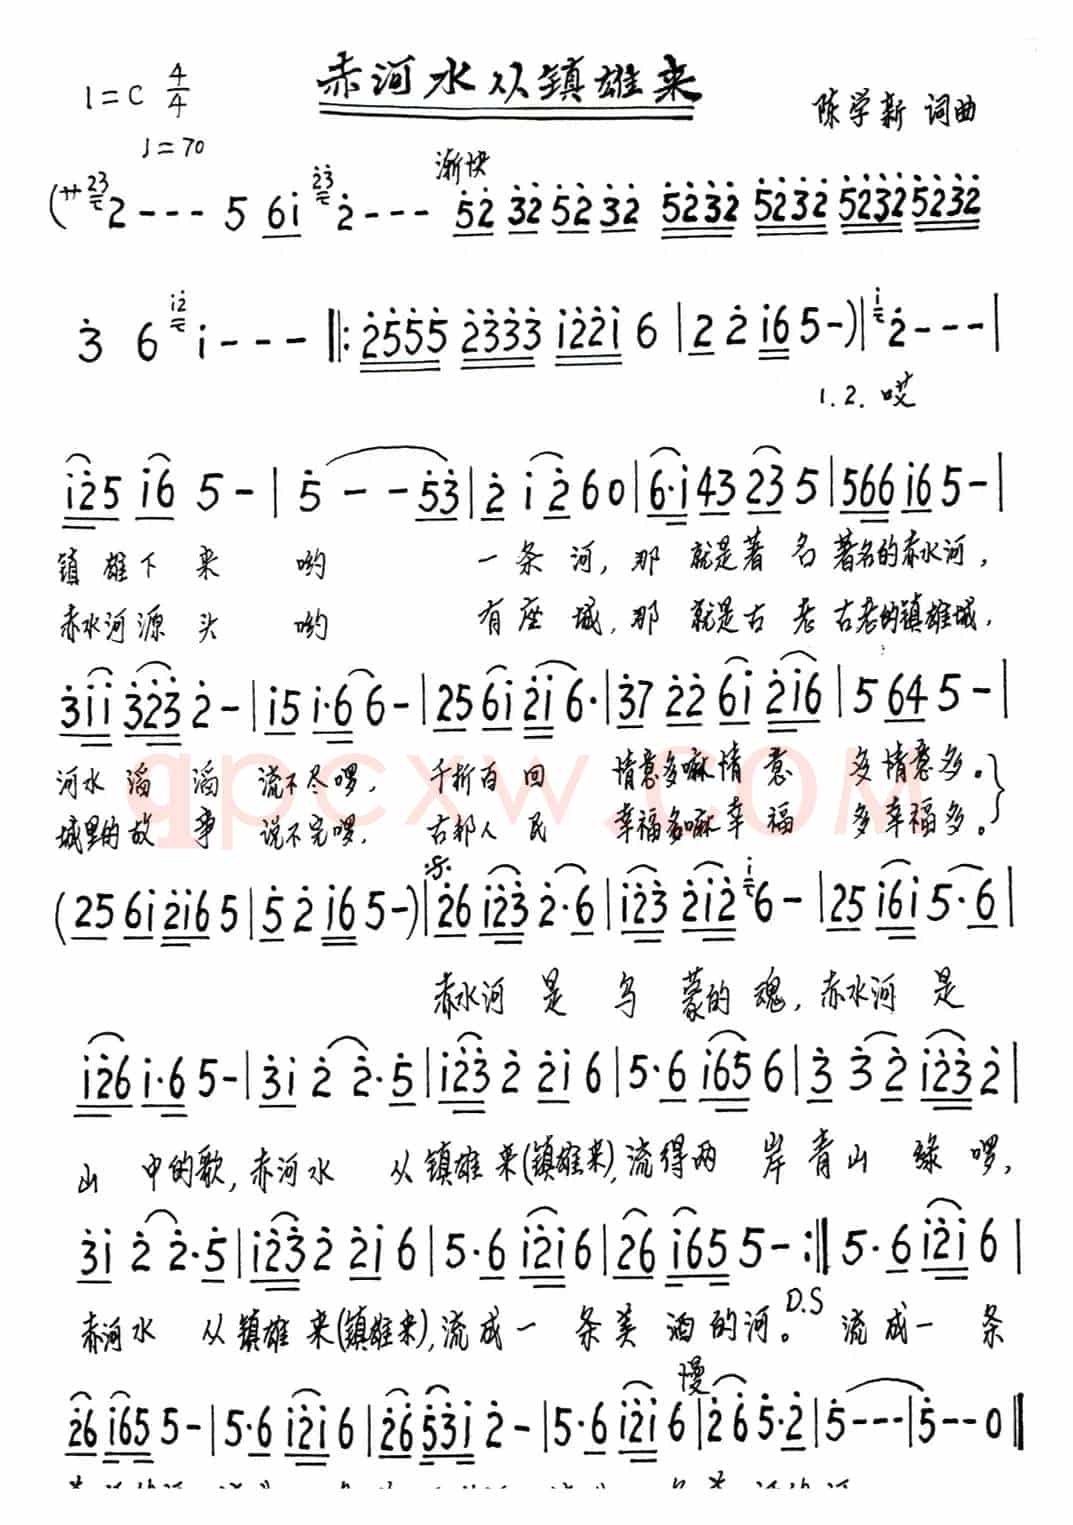 赤河水从镇雄来
1=C 4/4
♩=70
陈学新 词曲
渐快
(サ 23 2 - - - 5 6i 23 2 - - - 52 32 52 32 5232 5232 5232 5232
3 6 i2 i - - - ‖: 2555 2333 i22i 6 | 2 2 i6 5 - )‖ i 2 - - - |
1. 2. 哎
i25 i6 5 - | 5 - - 53 | 2 i 2 6 0 | 6·i 43 23 5 | 566 i6 5 - |
镇雄下来 哟 一条河, 那就是著名著名的赤水河,
赤水河源头 哟 有座城, 那就是古老古老的镇雄城,
3ii 323 2 - | i5 i·6 6 - | 25 6i 2i 6· | 37 22 6i 2i6 | 5 64 5 - |
河水滔滔流不尽啰, 千折百回 情意多嘛情意 多情意多。
城里的故事说不完啰, 古邦人民 幸福多嘛幸福 多幸福多。
(25 6i 2i6 5 | 5 2 i6 5 - )| 26 i23 2·6 | i23 2i2 i 6 - | 25 i6i 5·6 |
赤水河是乌蒙的魂, 赤水河是
i26 i·6 5 - | 3i 2 2·5 | i23 2 2i 6 | 5·6 i65 6 | 3 32 i23 2 |
山中的歌, 赤河水 从镇雄来(镇雄来), 流得两岸青山绿啰,
3i 2 2·5 | i23 2 2i 6 | 5·6 i2i 6 | 26 i65 5 - :‖ 5·6 i2i 6 |
赤河水 从镇雄来(镇雄来), 流成一条美酒的河。 D.S 流成一条
慢
26 i65 5 - | 5·6 i2i 6 | 26 53i 2 - | 5·6 i2i 6 | 26 5·2 | 5 - - - | 5 - - 0 ‖
qpcxw.COM